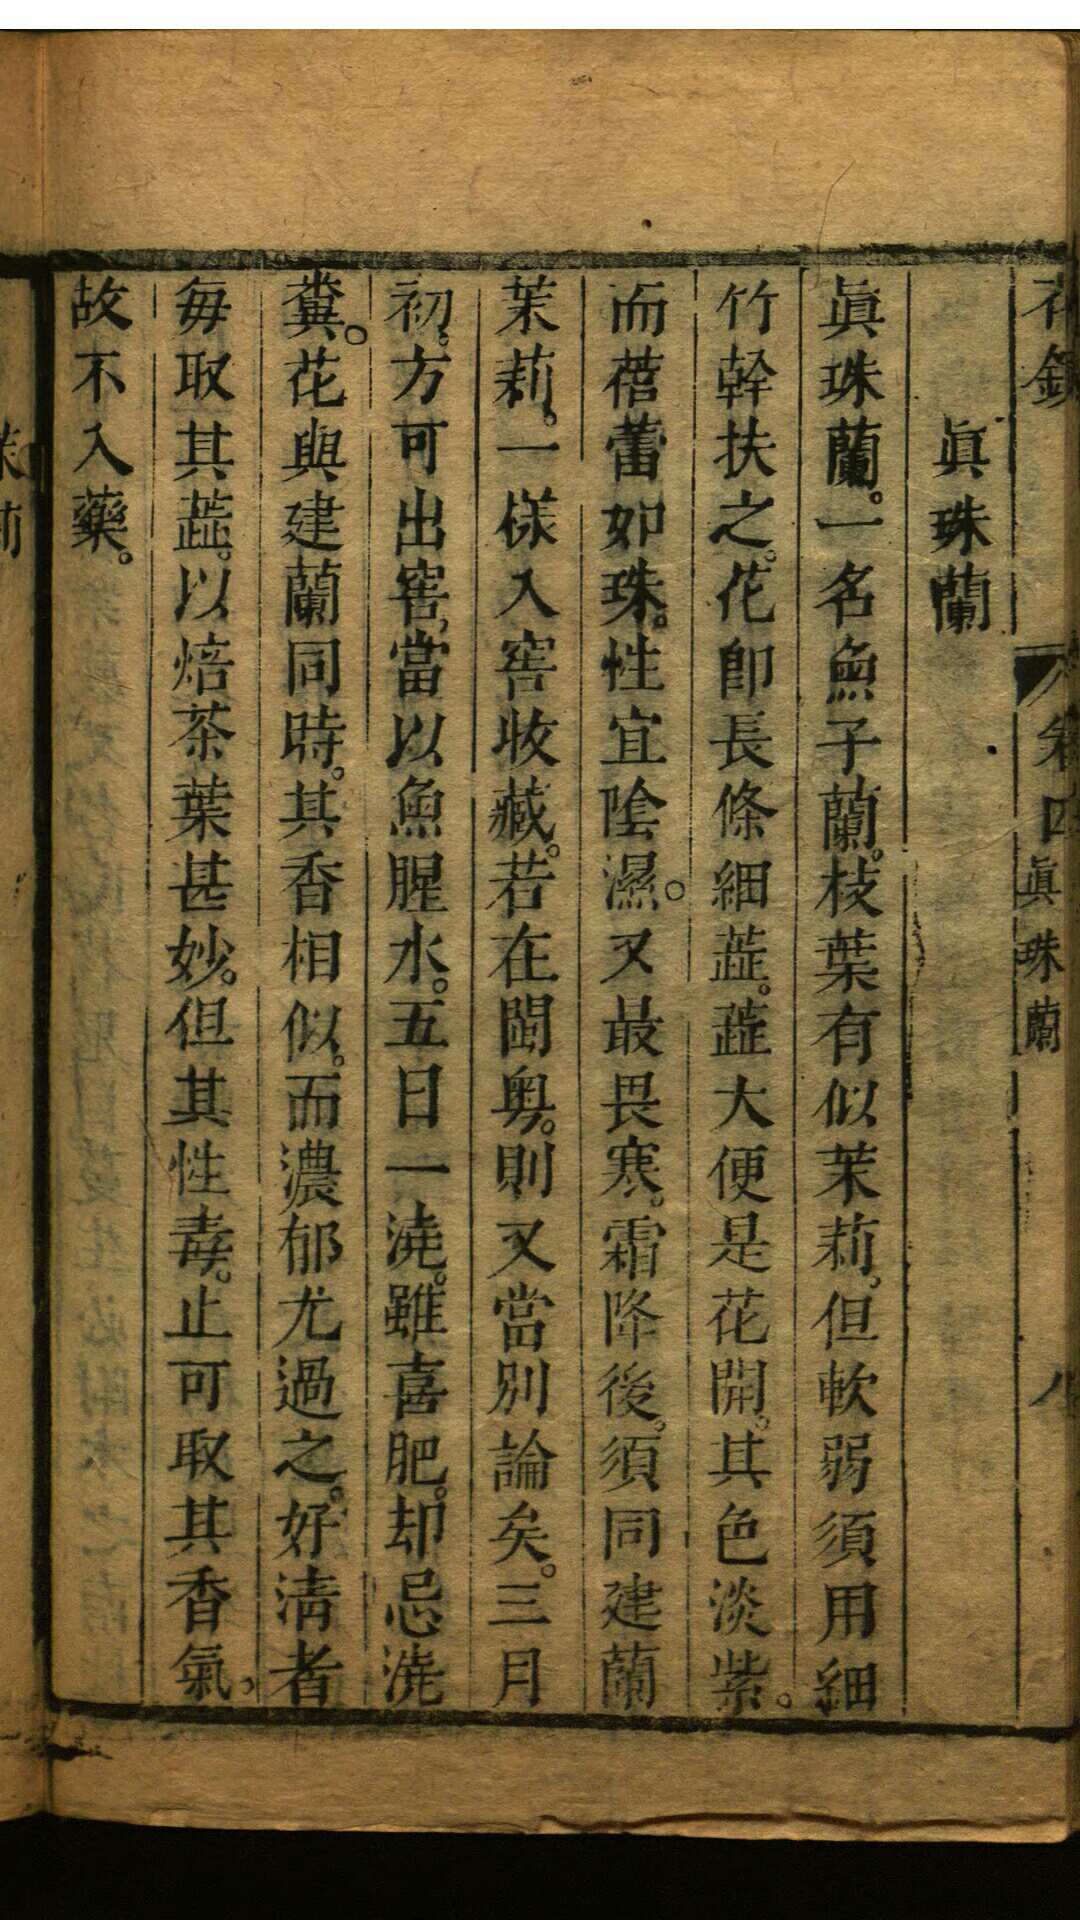 花鏡 卷四 眞珠蘭 八
眞珠蘭
眞珠蘭。一名魚子蘭。枝葉有似茉莉。但軟弱須用細
竹幹扶之。花卽長條細蕋。蕋大便是花開。其色淡紫。
而蓓蕾如珠。性宜陰濕。又最畏寒。霜降後。須同建蘭
茉莉。一樣入窖收藏。若在閩粵。則又當別論矣。三月
初。方可出窖。當以魚腥水。五日一澆。雖喜肥。却忌澆
糞。花與建蘭同時。其香相似。而濃郁尤過之。好淸者
每取其蕋。以焙茶葉甚妙。但其性毒。止可取其香氣。
故不入藥。
茉莉